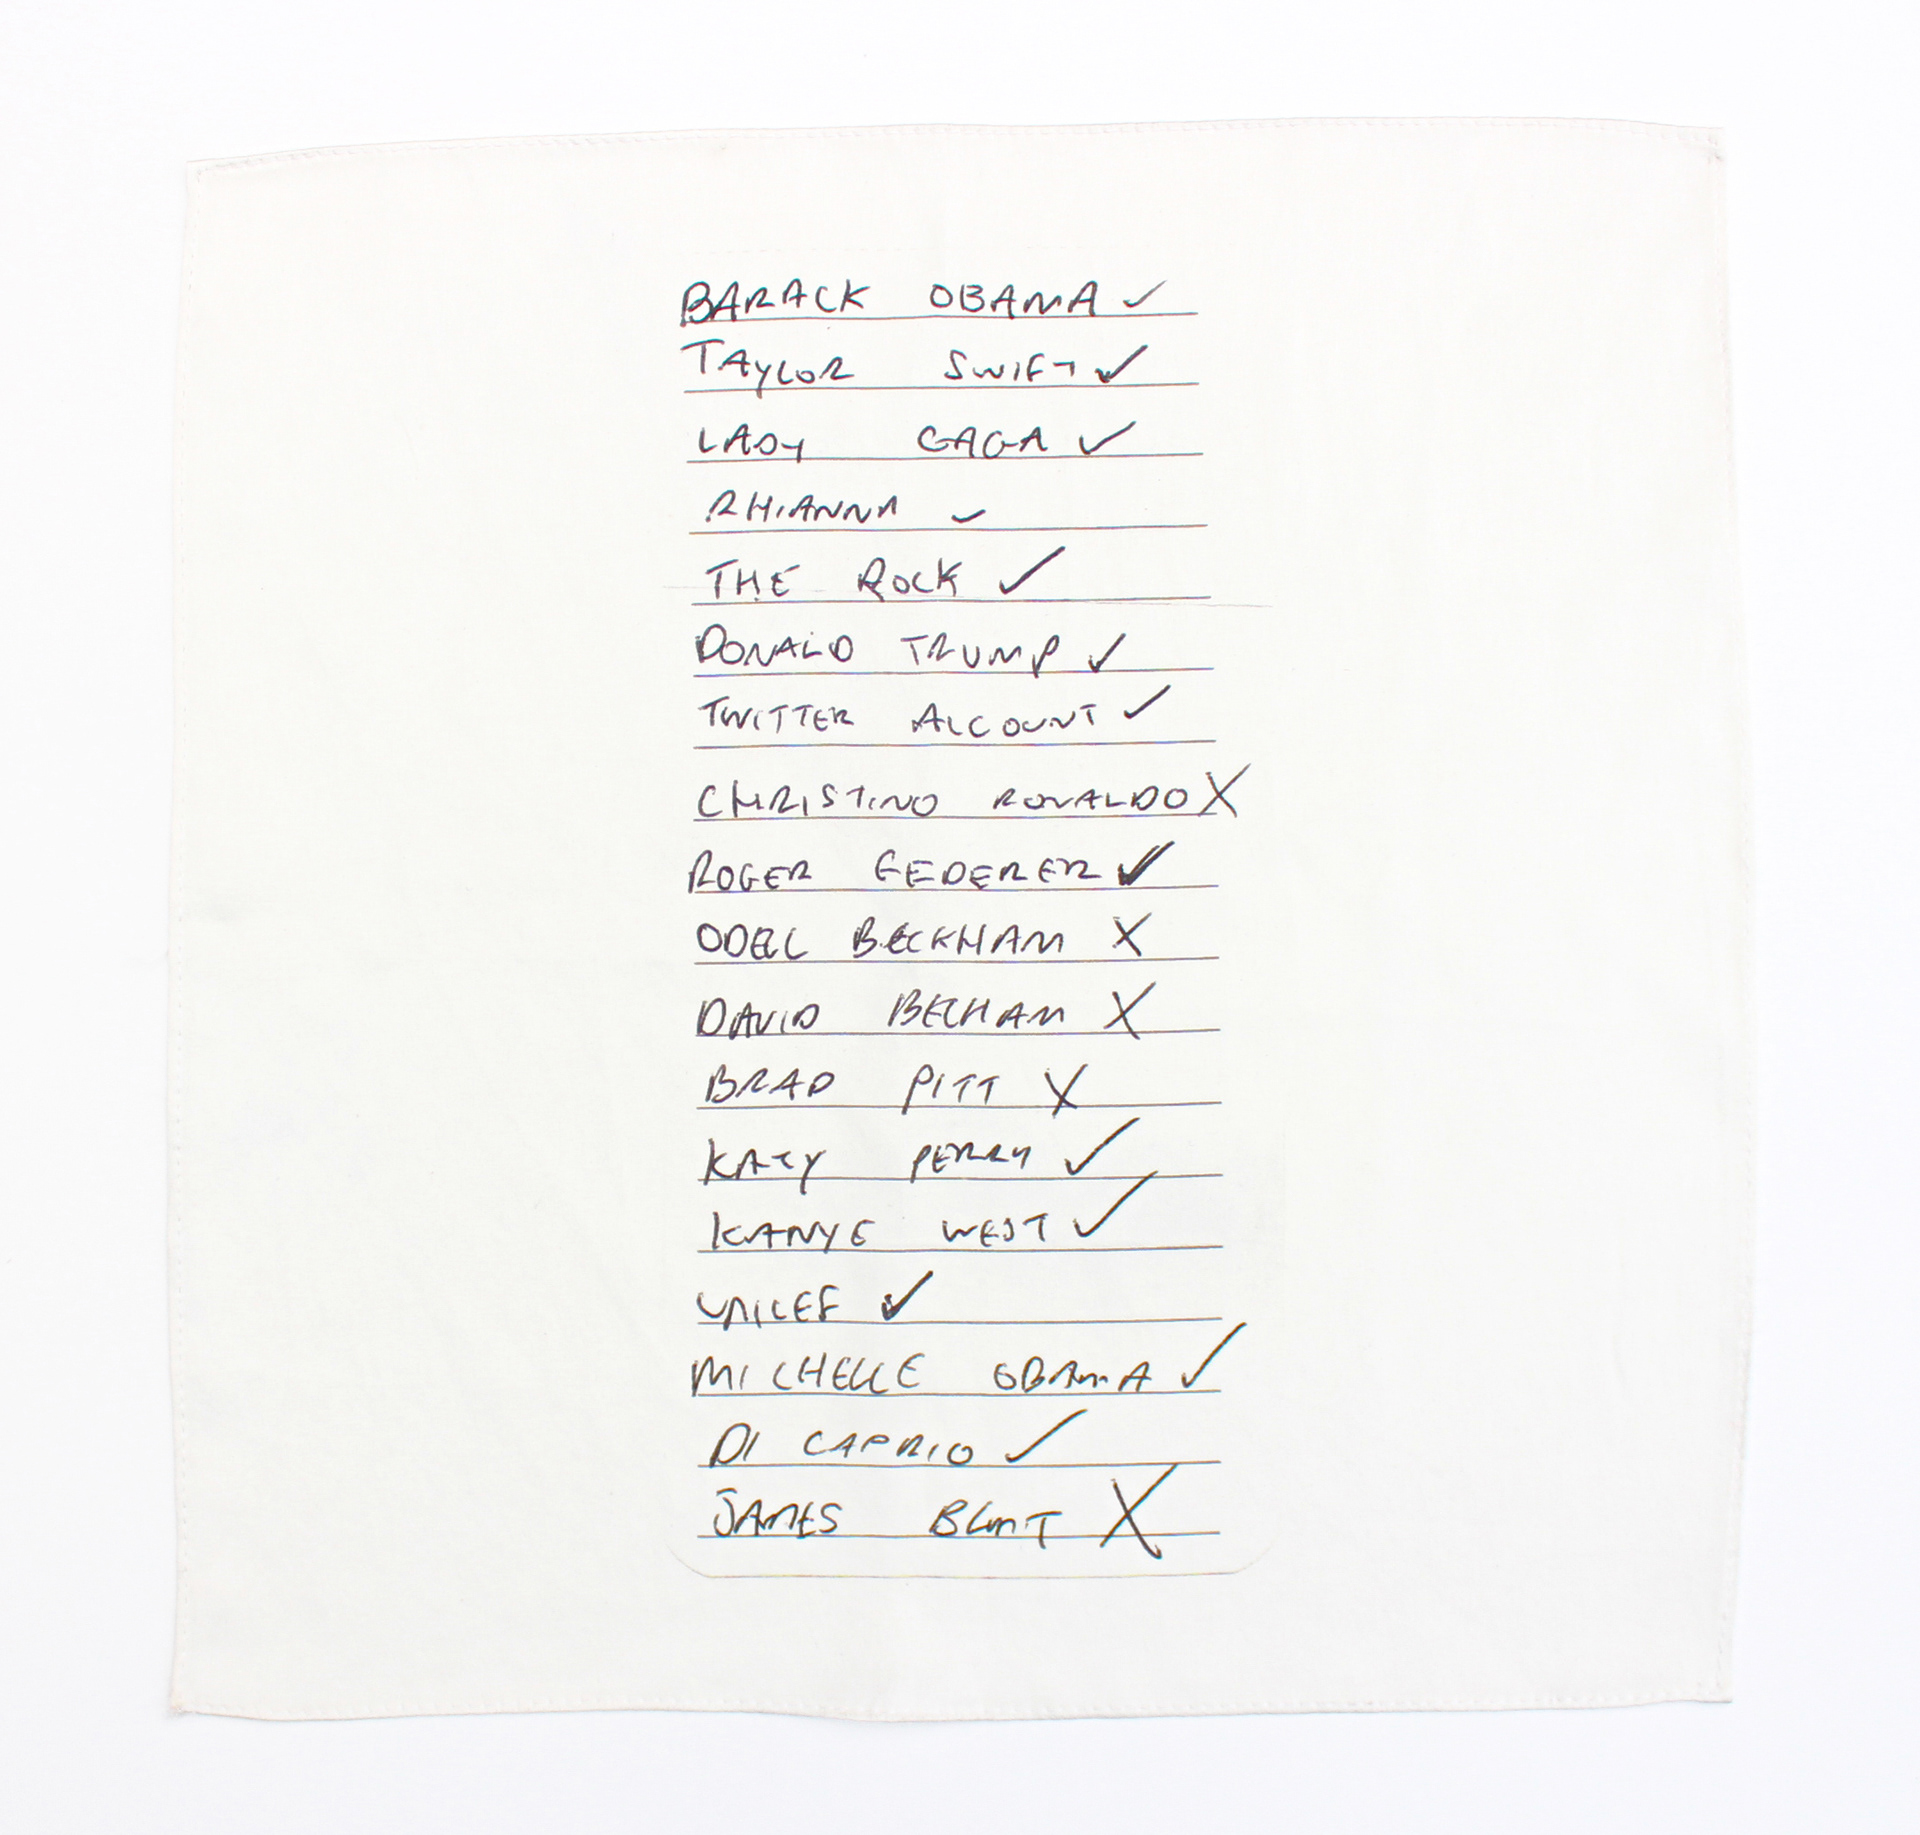 BARACK OBAMA ✓
TAYLOR SWIFT ✓
LADY GAGA ✓
RHIANNA ✓
THE ROCK ✓
DONALD TRUMP ✓
TWITTER ACCOUNT ✓
CHRISTINO RONALDO X
ROGER FEDERER ✓
ODELL BECKHAM X
DAVID BECHAM X
BRAD PITT X
KATY PERRY ✓
KANYE WEST ✓
UNICEF ✓
MICHELLE OBAMA ✓
DI CAPRIO ✓
JAMES BLUNT X